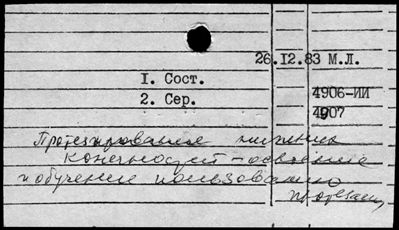 26.12.83 М.Л.
1. Сост.
2. Сер.
4906-ИИ
4907
Протезирование нижних
конечностей - освоение
и обучение пользованию
протезами